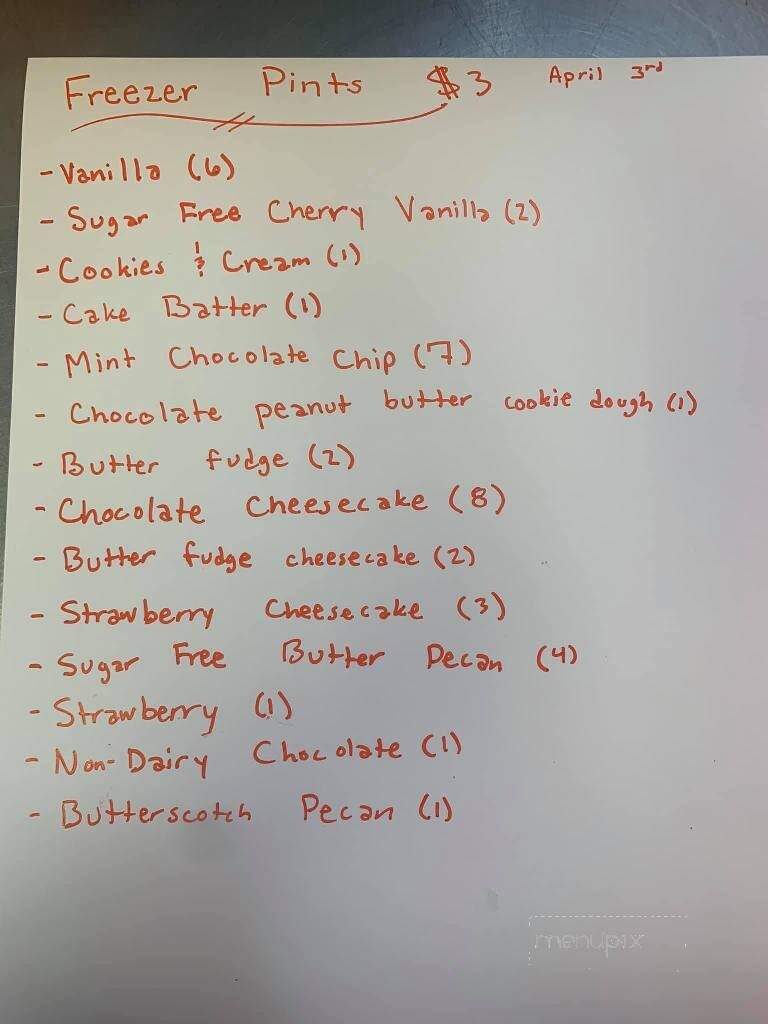 Freezer Pints $3 April 3rd
- Vanilla (6)
- Sugar Free Cherry Vanilla (2)
- Cookies & Cream (1)
- Cake Batter (1)
- Mint Chocolate Chip (7)
- Chocolate peanut butter cookie dough (1)
- Butter fudge (2)
- Chocolate Cheesecake (8)
- Butter fudge cheesecake (2)
- Strawberry Cheesecake (3)
- Sugar Free Butter Pecan (4)
- Strawberry (1)
- Non-Dairy Chocolate (1)
- Butterscotch Pecan (1)
menupix